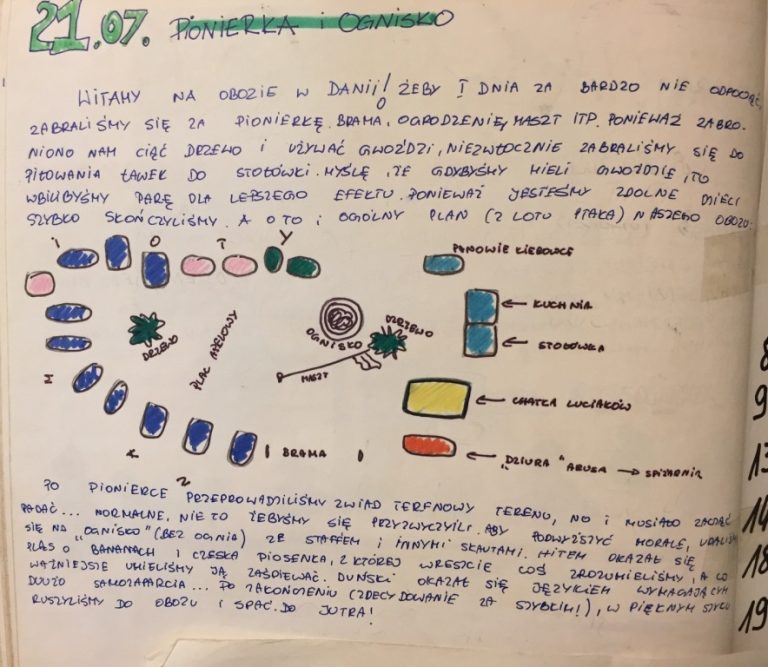 21.07. PIONIERKA i OGNISKO
WITAMY NA OBOZIE W DANII! ŻEBY I DNIA ZA BARDZO NIE ODPOCZĄĆ,
ZABRALIŚMY SIĘ ZA PIONIERKĘ. BRAMA, OGRODZENIE, MASZT ITP. PONIEWAŻ ZABRO-
NIONO NAM CIĄĆ DRZEWO I UŻYWAĆ GWOŹDZI, NIEZWŁOCZNIE ZABRALIŚMY SIĘ DO
ŁAWEK DO STOŁÓWKI. MYŚLĘ, ŻE GDYBYŚMY MIELI GWOŹDZIE, TO
WBILIBYŚMY PARĘ DLA LEPSZEGO EFEKTU. PONIEWAŻ JESTEŚMY ZDOLNE DZIECI
SZYBKO SKOŃCZYLIŚMY. A O TO I OGÓLNY PLAN (Z LOTU PTAKA) NASZEGO OBOZU:
i O T Y
PANOWIE KIEROWCE
KUCHNIA
STOŁÓWKA
DRZEWO
PLAC APELOWY
OGNISKO
DRZEWO
MASZT
CHATKA LUCIAKÓW
BRAMA
"DZIURA" ABUSA → SPIŻARNIA
PO PIONIERCE PRZEPROWADZILIŚMY ZWIAD TERENOWY TERENU, NO I MUSIAŁO ZACZĄĆ
PADAĆ... NORMALNE, NIE TO ŻEBYŚMY SIĘ PRZYZWYCZYILI. ABY PODWYŻSZYĆ MORALE, UDALIŚMY
SIĘ NA "OGNISKO" (BEZ OGNIA) ZE STAFFEM I INNYMI SKAUTAMI. HITEM OKAZAŁ SIĘ
PLĄS O BANANACH I CZESKA PIOSENKA, Z KTÓREJ WRESZCIE COŚ ZROZUMIELIŚMY, A CO
WAŻNIEJSZE UMIELIŚMY JĄ ZAŚPIEWAĆ. DUŃSKI OKAZAŁ SIĘ JĘZYKIEM WYMAGAJĄCYM
DUŻO SAMOZAPARCIA... PO ZAKOŃCZENIU (ZDECYDOWANIE ZA SZYBKIM!), W PIĘKNYM SZYKU
RUSZYLIŚMY DO OBOZU I SPAĆ. DO JUTRA!
8
9
13
14
18
19